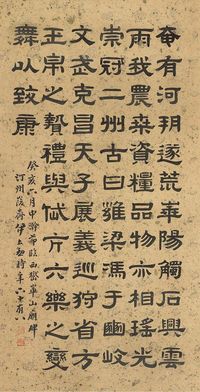 奄有河朔遂荒華陽觸石興雲
雨我農桒資糧品物亦相瑶光
崇冠二州古曰雍梁馮于豳岐
文武克昌天子展義巡狩省方
玉帛之贄禮與岱亢六樂之變
舞以致康
癸亥六月中澣節臨西嶽華山廟碑
汀州峻齋伊立勳時年六十有八